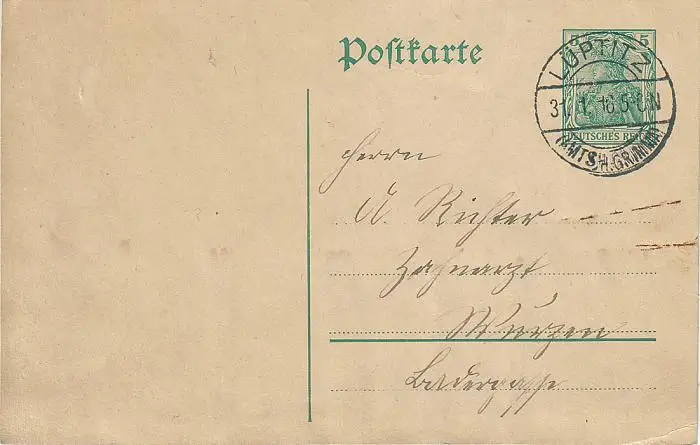 Postkarte
5
LÜPTITZ
31. 1. 16. 5-6 N
(AMTSH. GRIMMA)
DEUTSCHES REICH
Herrn
A. Richter
Zahnarzt
Wurzen
Badergasse